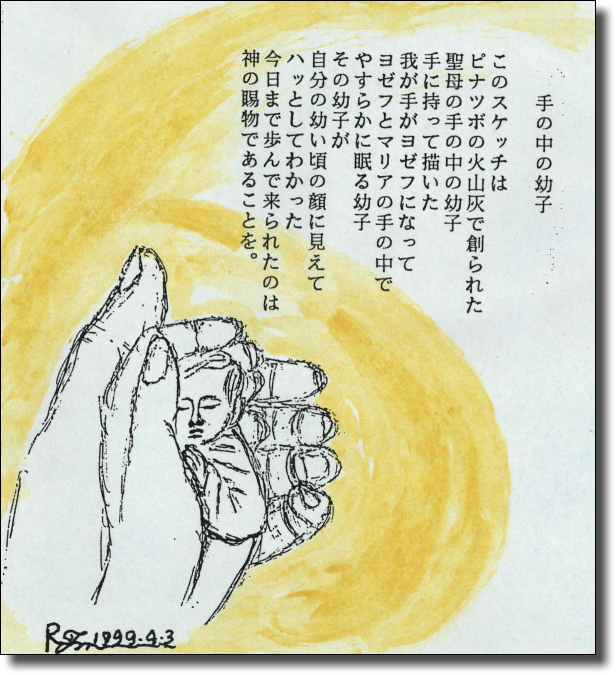 手の中の幼子
このスケッチは
ピナツボの火山灰で創られた
聖母の手の中の幼子
手に持って描いた
我が手がヨゼフになって
ヨゼフとマリアの手の中で
やすらかに眠る幼子
その幼子が
自分の幼い頃の顔に見えて
ハッとしてわかった
今日まで歩んで来られたのは
神の賜物であることを。
1999.9.3